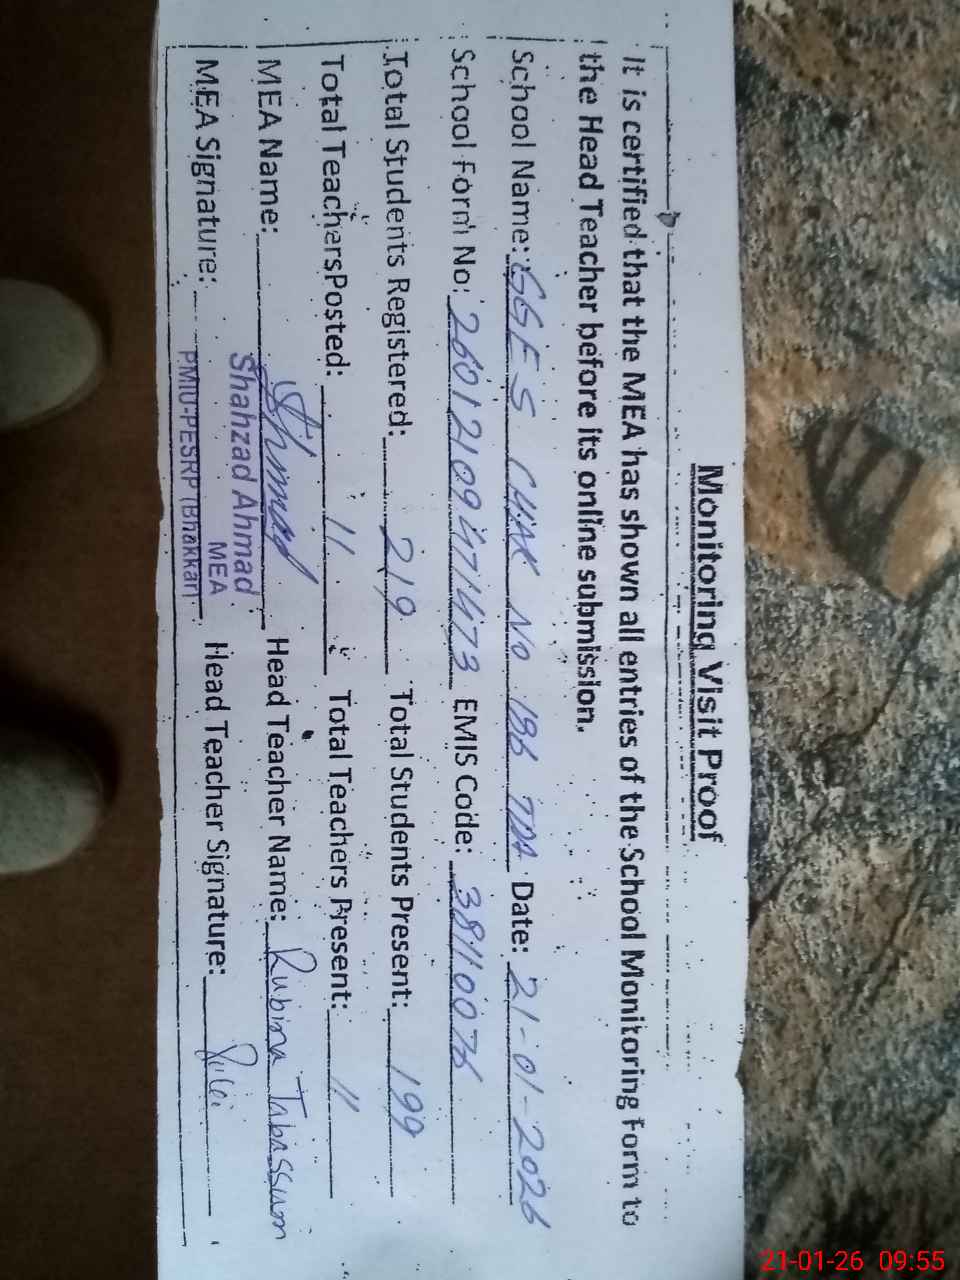 Monitoring Visit Proof
It is certified that the MEA has shown all entries of the School Monitoring Form to
the Head Teacher before its online submission.
School Name: GGES CHAK NO 186 TDA Date: 21-01-2026
School Form No: 260121094714173 EMIS Code: 38110076
Total Students Registered: 219 Total Students Present: 199
Total Teachers Posted: 11 Total Teachers Present: 11
MEA Name: Head Teacher Name: Rubina Tabassum
Shahzad Ahmad
MEA
MEA Signature: PMIU-PESRP (Bhakkar) Head Teacher Signature:
21-01-26 09:55